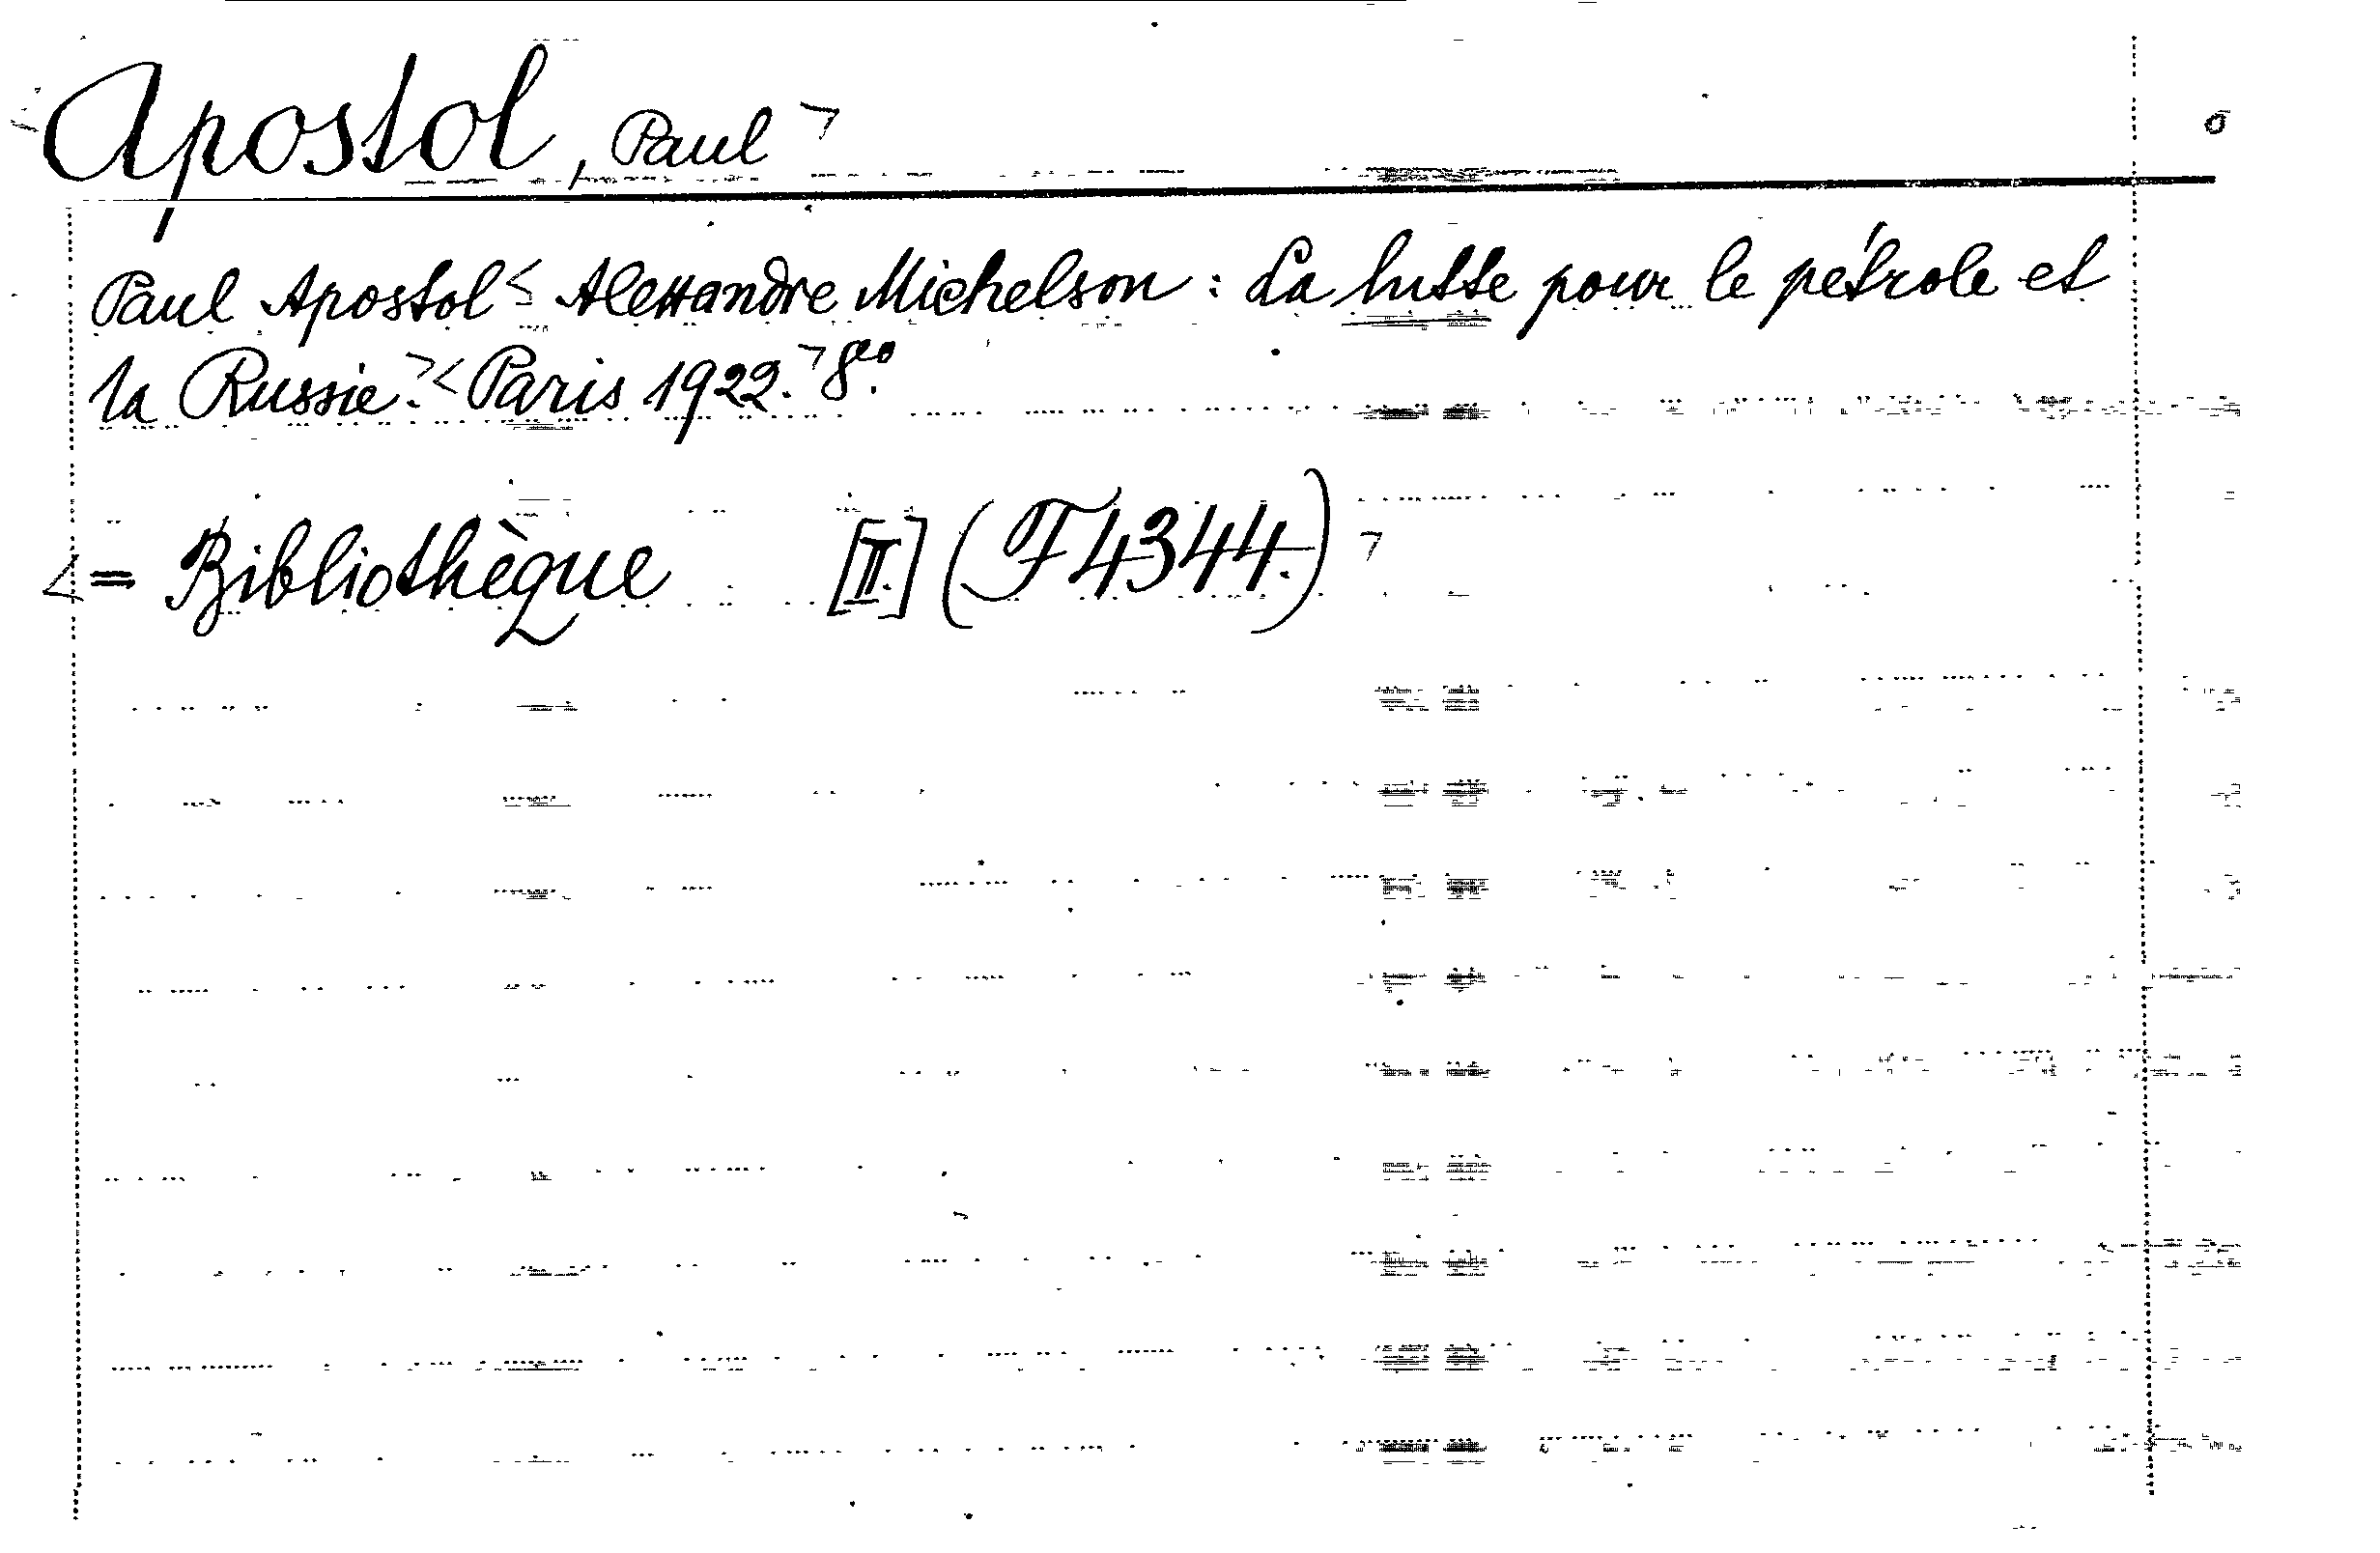 Apostol, Paul ㄱ
Paul Apostol < Alessandre Michelson : La lutte pour le pétrole et
la Russie. > < Paris 1922. > 8°°.
< = Bibliothèque [II.] (F 4344.) >